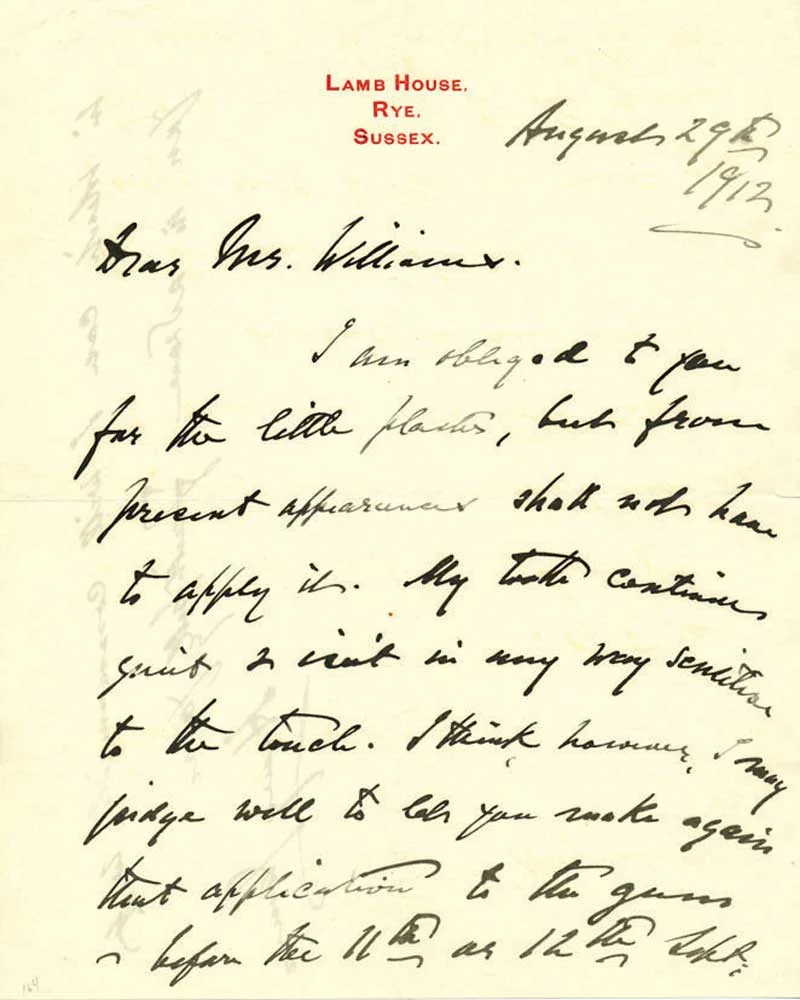 LAMB HOUSE,
RYE,
SUSSEX.
August 29th
1912.
Dear Mr. Williams.
I am obliged to you
for the little plaster, but from
present appearances shall not have
to apply it. My tooth continues
quiet & isn't in any way sensitive
to the touch. I think, however, I may
judge well to let you make again
that application to the gum
before the 11th or 12th Sept:
164